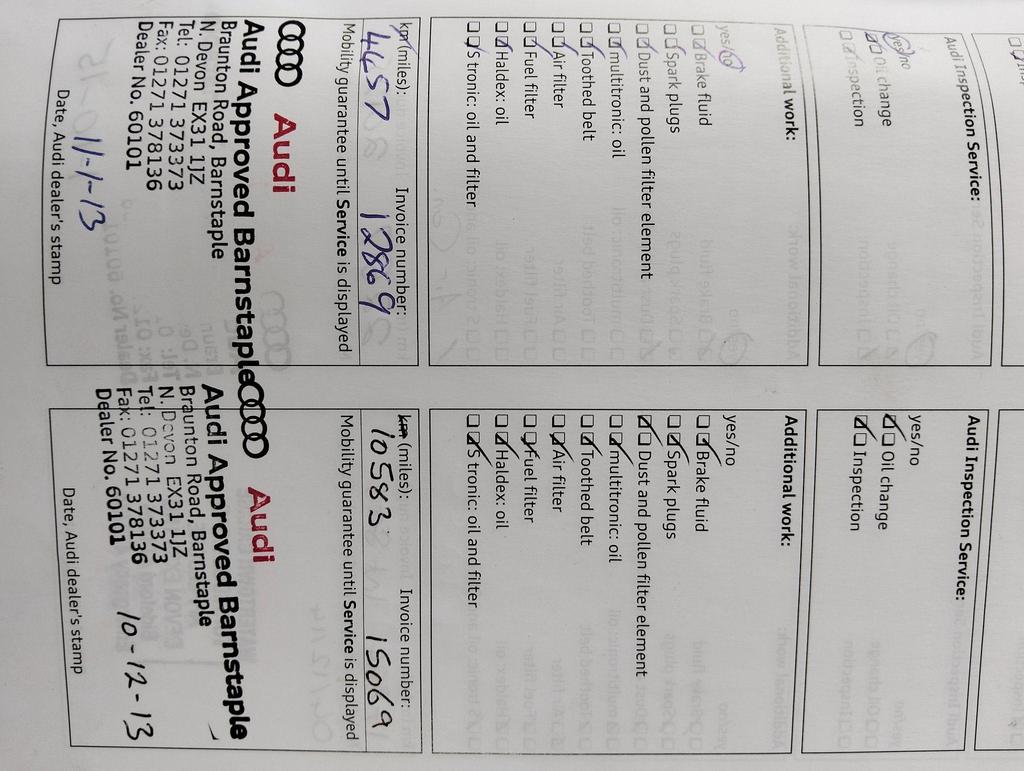 Audi Inspection Service:
yes/no
Oil change
Inspection
Additional work:
yes/no
Brake fluid
Spark plugs
Dust and pollen filter element
multitronic: oil
Toothed belt
Air filter
Fuel filter
Haldex: oil
S tronic: oil and filter
km (miles): Invoice number:
4457 12869
Mobility guarantee until Service is displayed
Audi
Audi Approved Barnstaple
Braunton Road, Barnstaple
N. Devon EX31 1JZ
Tel: 01271 373373
Fax: 01271 378136
Dealer No. 60101
11-1-13
Date, Audi dealer's stamp
Audi Inspection Service:
yes/no
Oil change
Inspection
Additional work:
yes/no
Brake fluid
Spark plugs
Dust and pollen filter element
multitronic: oil
Toothed belt
Air filter
Fuel filter
Haldex: oil
S tronic: oil and filter
km (miles): Invoice number:
10583 15069
Mobility guarantee until Service is displayed
Audi
Audi Approved Barnstaple
Braunton Road, Barnstaple
N. Devon EX31 1JZ
Tel: 01271 373373
Fax: 01271 378136
Dealer No. 60101
10-12-13
Date, Audi dealer's stamp